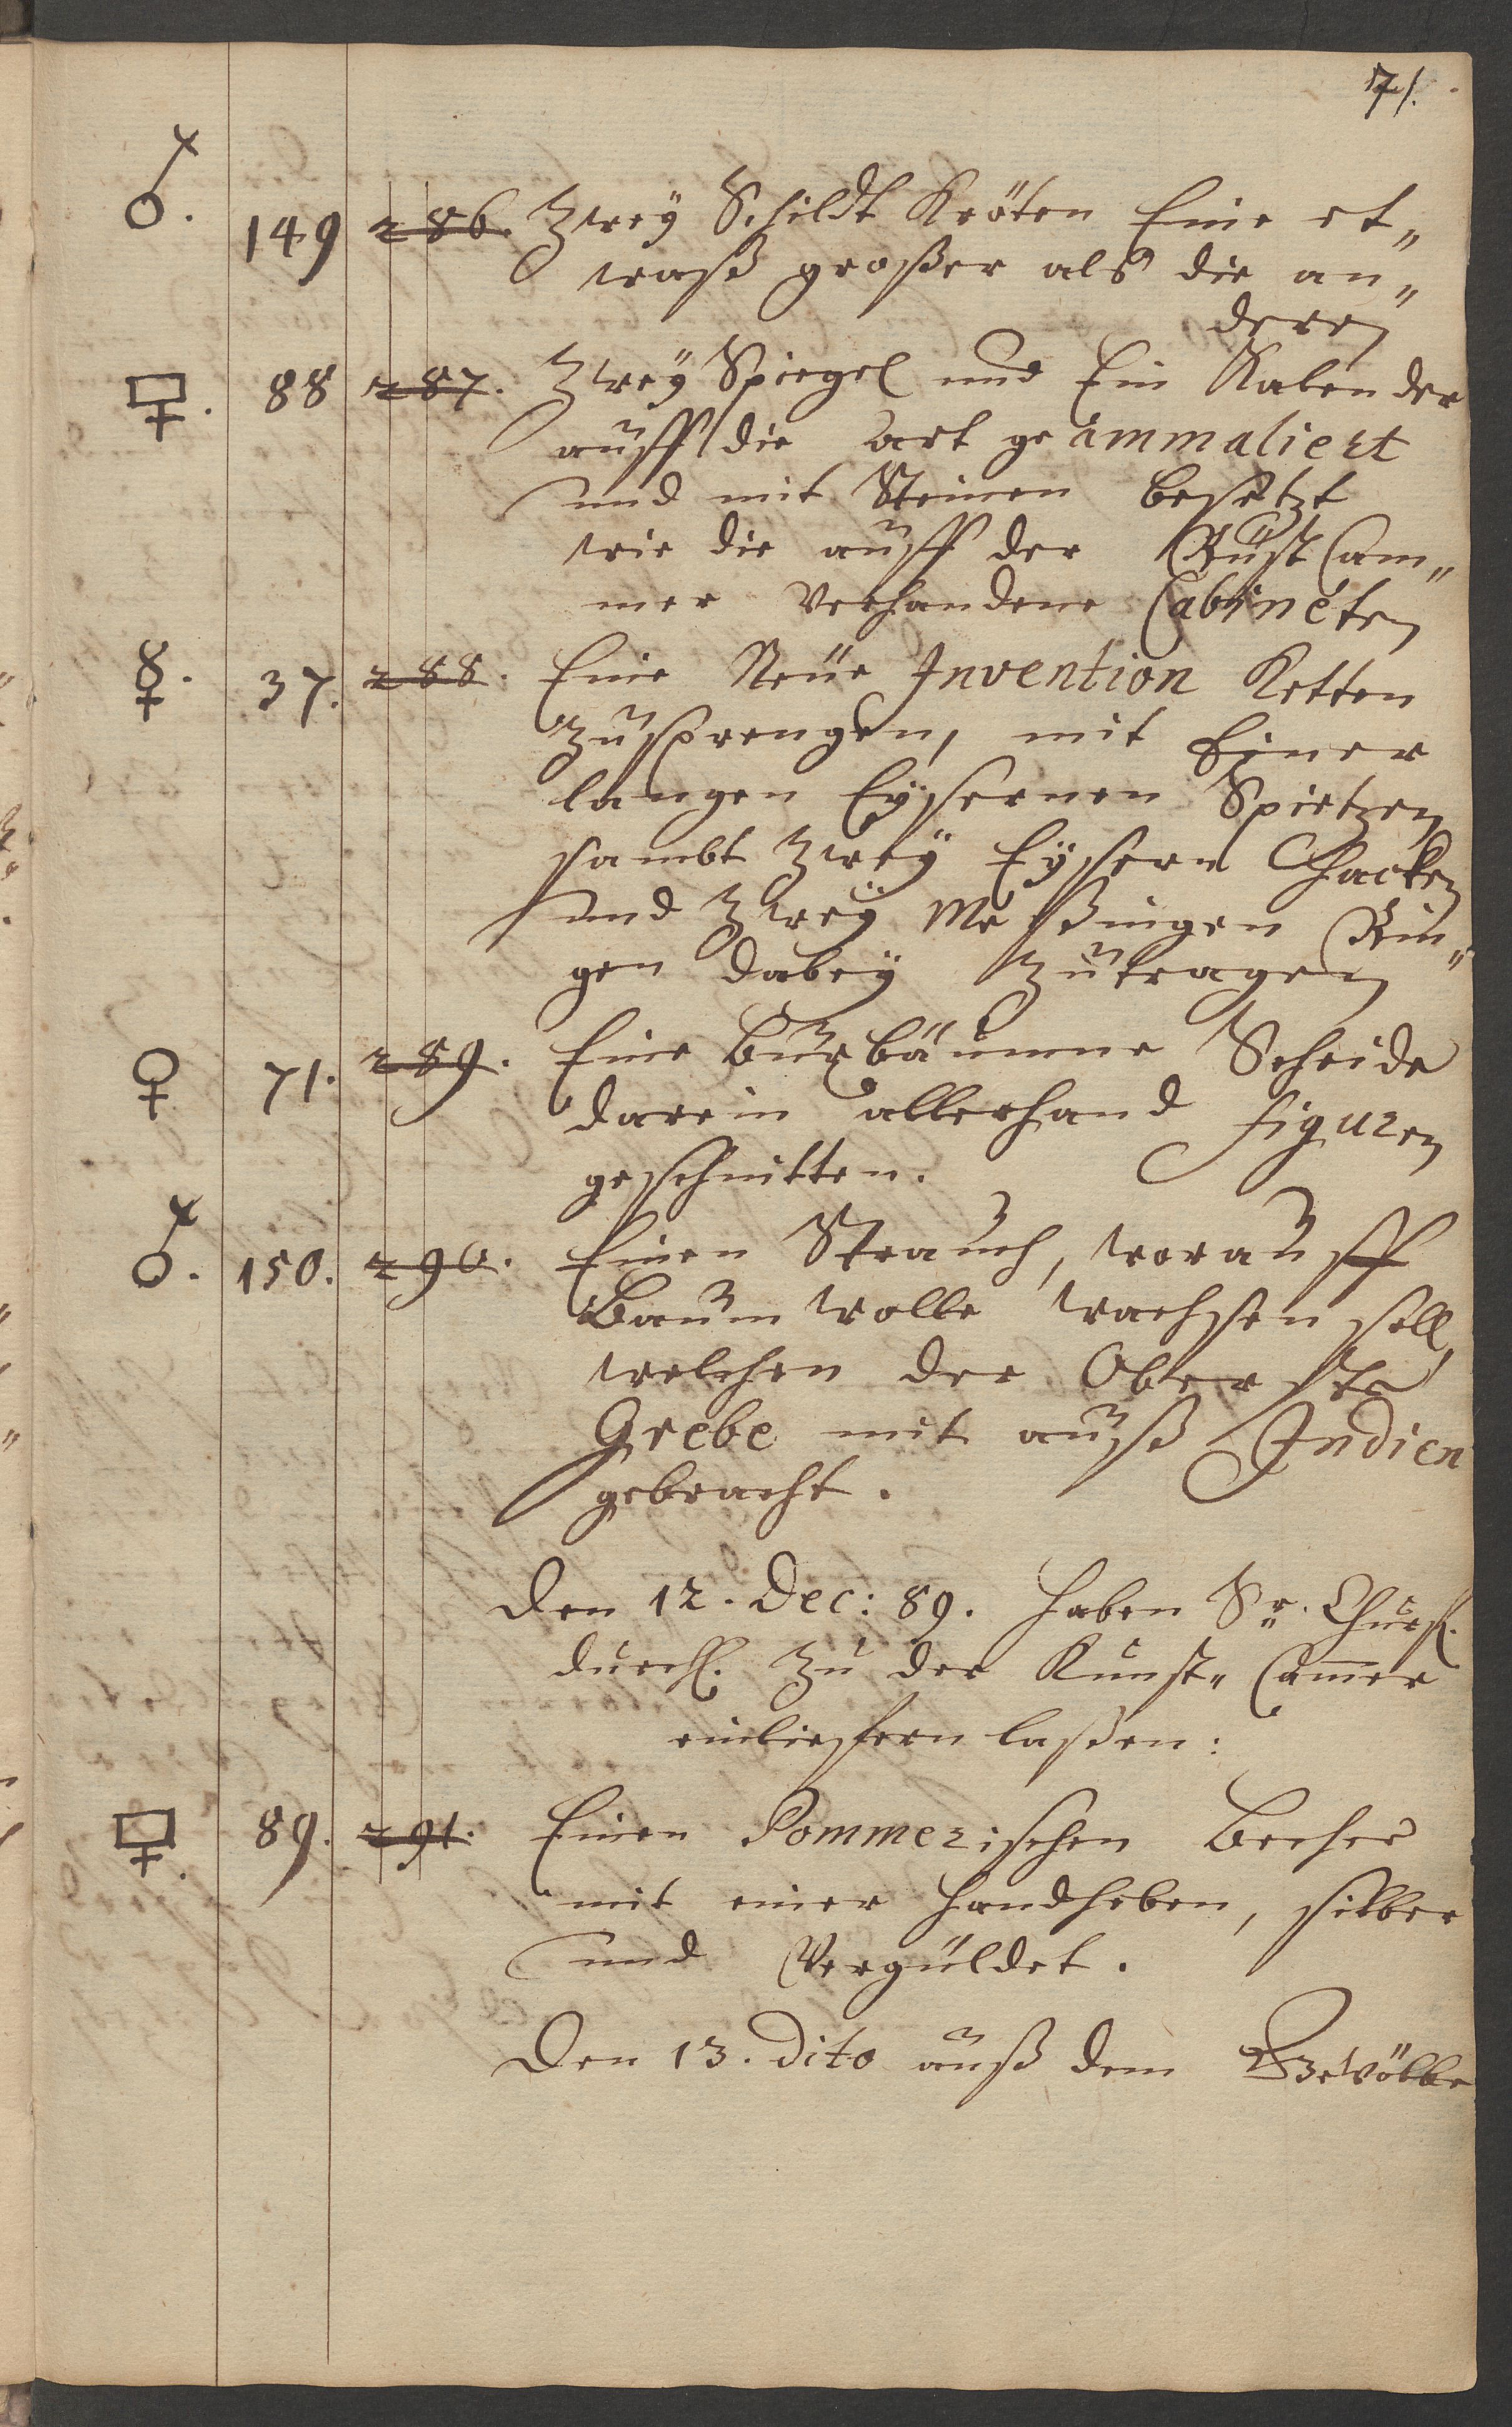 71.
♂. 149 286. Zweÿ Schildt Kröten Eine et„
waß großer als die an„
deren
88 287. Zweÿ Spiegel und Ein Kalender
auff die art geämmaliert
und mit Steinen besetzt
wie die auff der Rüst Cam„
mer Verhandene Cabineten
☿. 37. 288. Eine Neüe Invention Ketten
Zusprengen, mit Einer
langen Eÿsernen Spietzen
sambt Zweÿ Eÿsern Hacken
und Zweÿ Meßingen Rin„
gen dabeÿ Zutragen
♀ 71. 289. Eine buxbäumne Scheide
darein allerhand figuren
geschnitten.
♂. 150. 290. Einen Strauch, worauff
Baumwolle wachsen soll,
welchen der Oberste
Grebe mit auß Indien
gebracht.
Den 12. Dec: 89. haben Sr. Churfl.
durchl. Zu der Kunst„ Cam̅er
einliefern laßen:
89. 291. Einen Pommerischen becher
mit einer handheben, silber
und Vergüldet.
Den 13. dito auß dem Gewölbe